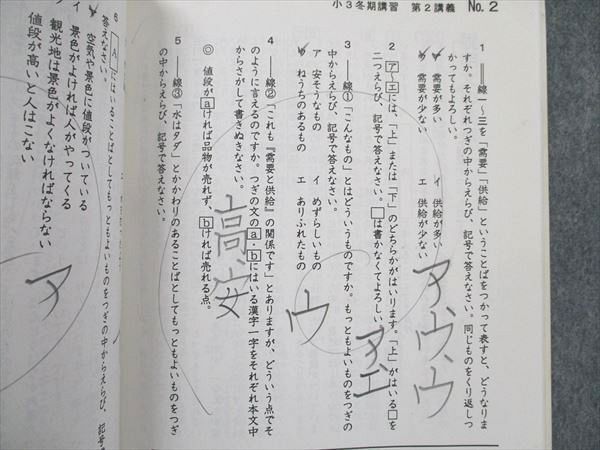 小3冬期講習 第2講義 No.2
1 ――線一〜三を「需要」「供給」ということばをつかって表すと、どうなりま
すか。それぞれつぎの中からえらび、記号で答えなさい。同じものをくり返しつ
かってもよろしい。
ア 需要が多い イ 供給が多い
ウ 需要が少ない エ 供給が少ない
ア、ウ、ウ
2 ア〜エには、「上」または「下」のどちらかがはいります。「上」がはいる□を
二つえらび、記号で答えなさい。□は書かなくてよろしい。
ア、エ
3 ――線①「こんなもの」とはどういうものですか。もっともよいものをつぎの
中からえらび、記号で答えなさい。
ア 安そうなもの イ めずらしいもの
ウ ねうちのあるもの エ ありふれたもの
ウ
4 ――線②「これも『需要と供給』の関係です」とありますが、どういう点でそ
のように言えるのですか。つぎの文のa・bにはいる漢字一字をそれぞれ本文中
からさがして書きぬきなさい。
◎ 値段がaければ品物が売れず、bければ売れる点。
高、安
5 ――線③「水はタダ」とかかわりのあることばとしてもっともよいものをつぎ
の中からえらび、記号で答えなさい。
6 Aにはいることばとしてもっともよいものをつぎの中からえらび、記号で
答えなさい。
ア 空気や景色に値段がついている
景色がよければ人がやってくる
観光地は景色がよくなければならない
値段が高いと人はこない
ア